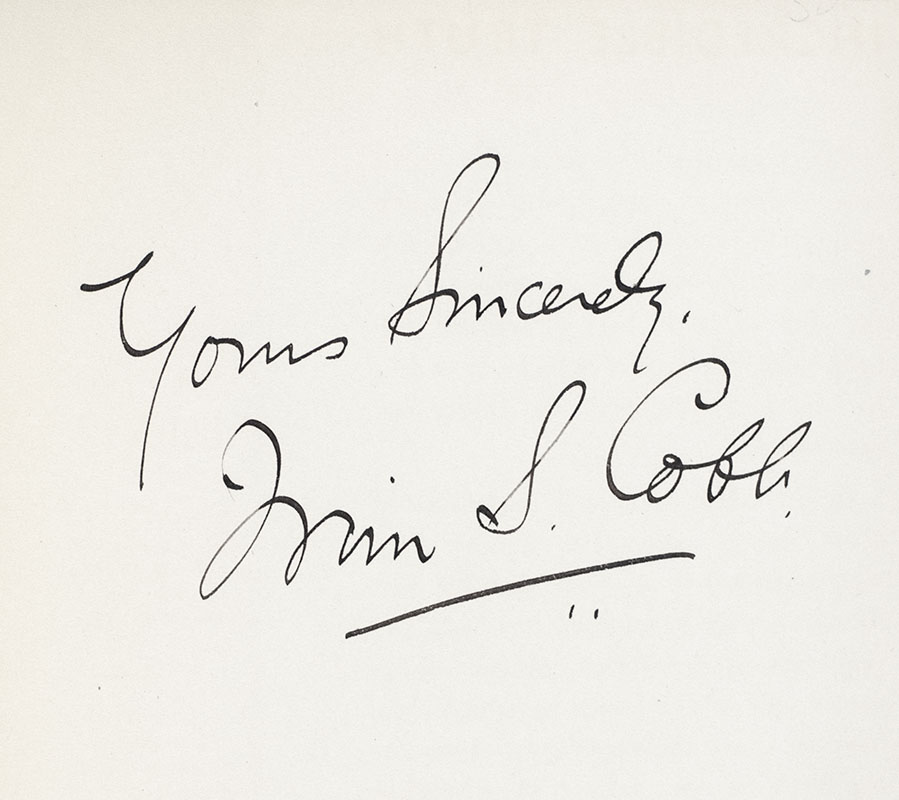 Yours Sincerely,
Irvin S. Cobb.